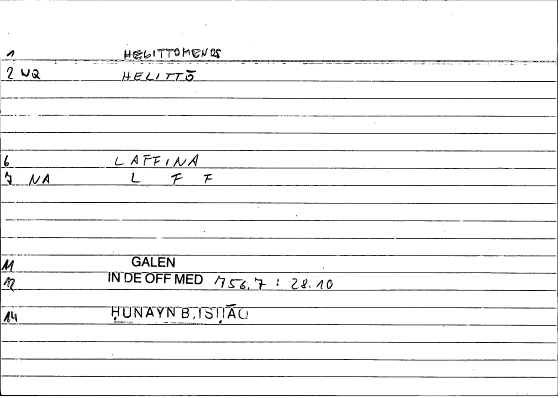 1 HELITTOMENOS
2 WQ HELITTŌ
6 LAFFINA
7 NA L F F
11 GALEN
12 IN DE OFF MED 756,7 : 28.10
14 ḤUNAYN B. ISḤĀQ